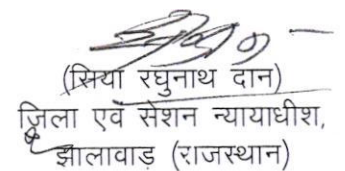 (सिया रघुनाथ दान)
ज़िला एवं सेशन न्यायाधीश,
झालावाड़ (राजस्थान)